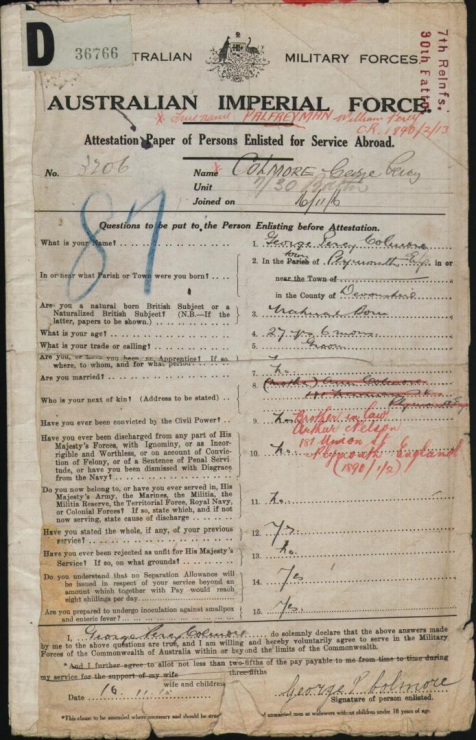 D 36766
AUSTRALIAN MILITARY FORCES.
7th Reinfs.
30th Battn.
AUSTRALIAN IMPERIAL FORCE.
x True name PALFREYMAN William Percy
C.R. 1890/2/13
Attestation Paper of Persons Enlisted for Service Abroad.
No. 3206 Name x COLMORE George Percy
Unit 7/30 Battn
Joined on 16/11/15
87
Questions to be put to the Person Enlisting before Attestation.
What is your Name? 1. George Percy Colmore
In or near what Parish or Town were you born? 2. In the Parish of Plymouth Eng. in or
town
near the Town of
in the County of Devonshire
Are you a natural born British Subject or a
Naturalized British Subject? (N.B.—If the
latter, papers to be shown.) 3. Natural Born
What is your age? 4. 27 yrs 6 mons
What is your trade or calling? 5. Groom
Are you, or have you been, an Apprentice? If so,
where, to whom, and for what period?
Are you married? 7. No.
Who is your next of kin? (Address to be stated) 8. (Mother) Colmore
Plymouth Eng
Have you ever been convicted by the Civil Power? 9. No.
Brother in law
Arthur Nelson
181 Union St
Plymouth England
(1890/1/2)
Have you ever been discharged from any part of His
Majesty's Forces, with Ignominy, or as Incor-
rigible and Worthless, or on account of Conviction
of Felony, or of a Sentence of Penal Servi-
tude, or have you been dismissed with Disgrace
from the Navy? 10. No.
Do you now belong to, or have you ever served in, His
Majesty's Army, the Marines, the Militia, the
Militia Reserve, the Territorial Force, Royal Navy,
or Colonial Forces? If so, state which, and if not
now serving, state cause of discharge 11. No.
Have you stated the whole, if any, of your previous
service? 12. Yes.
Have you ever been rejected as unfit for His Majesty's
Service? If so, on what grounds? 13. No.
Do you understand that no Separation Allowance will
be issued in respect of your service beyond an
amount which together with Pay would reach
eight shillings per day. 14. Yes
Are you prepared to undergo inoculation against smallpox
and enteric fever? 15. Yes.
I, George Percy Colmore do solemnly declare that the above answers made
by me to the above questions are true, and I am willing and hereby voluntarily agree to serve in the Military
Forces of the Commonwealth of Australia within or beyond the limits of the Commonwealth.
*And I further agree to allot not less than two-fifths of the pay payable to me from time to time during
three-fifths
my service for the support of my wife
wife and children
Date 16.11.15 George P. Colmore
Signature of person enlisted.
*This clause to be amended where necessary and should be struck out unmarried men or widowers without children under 18 years of age.